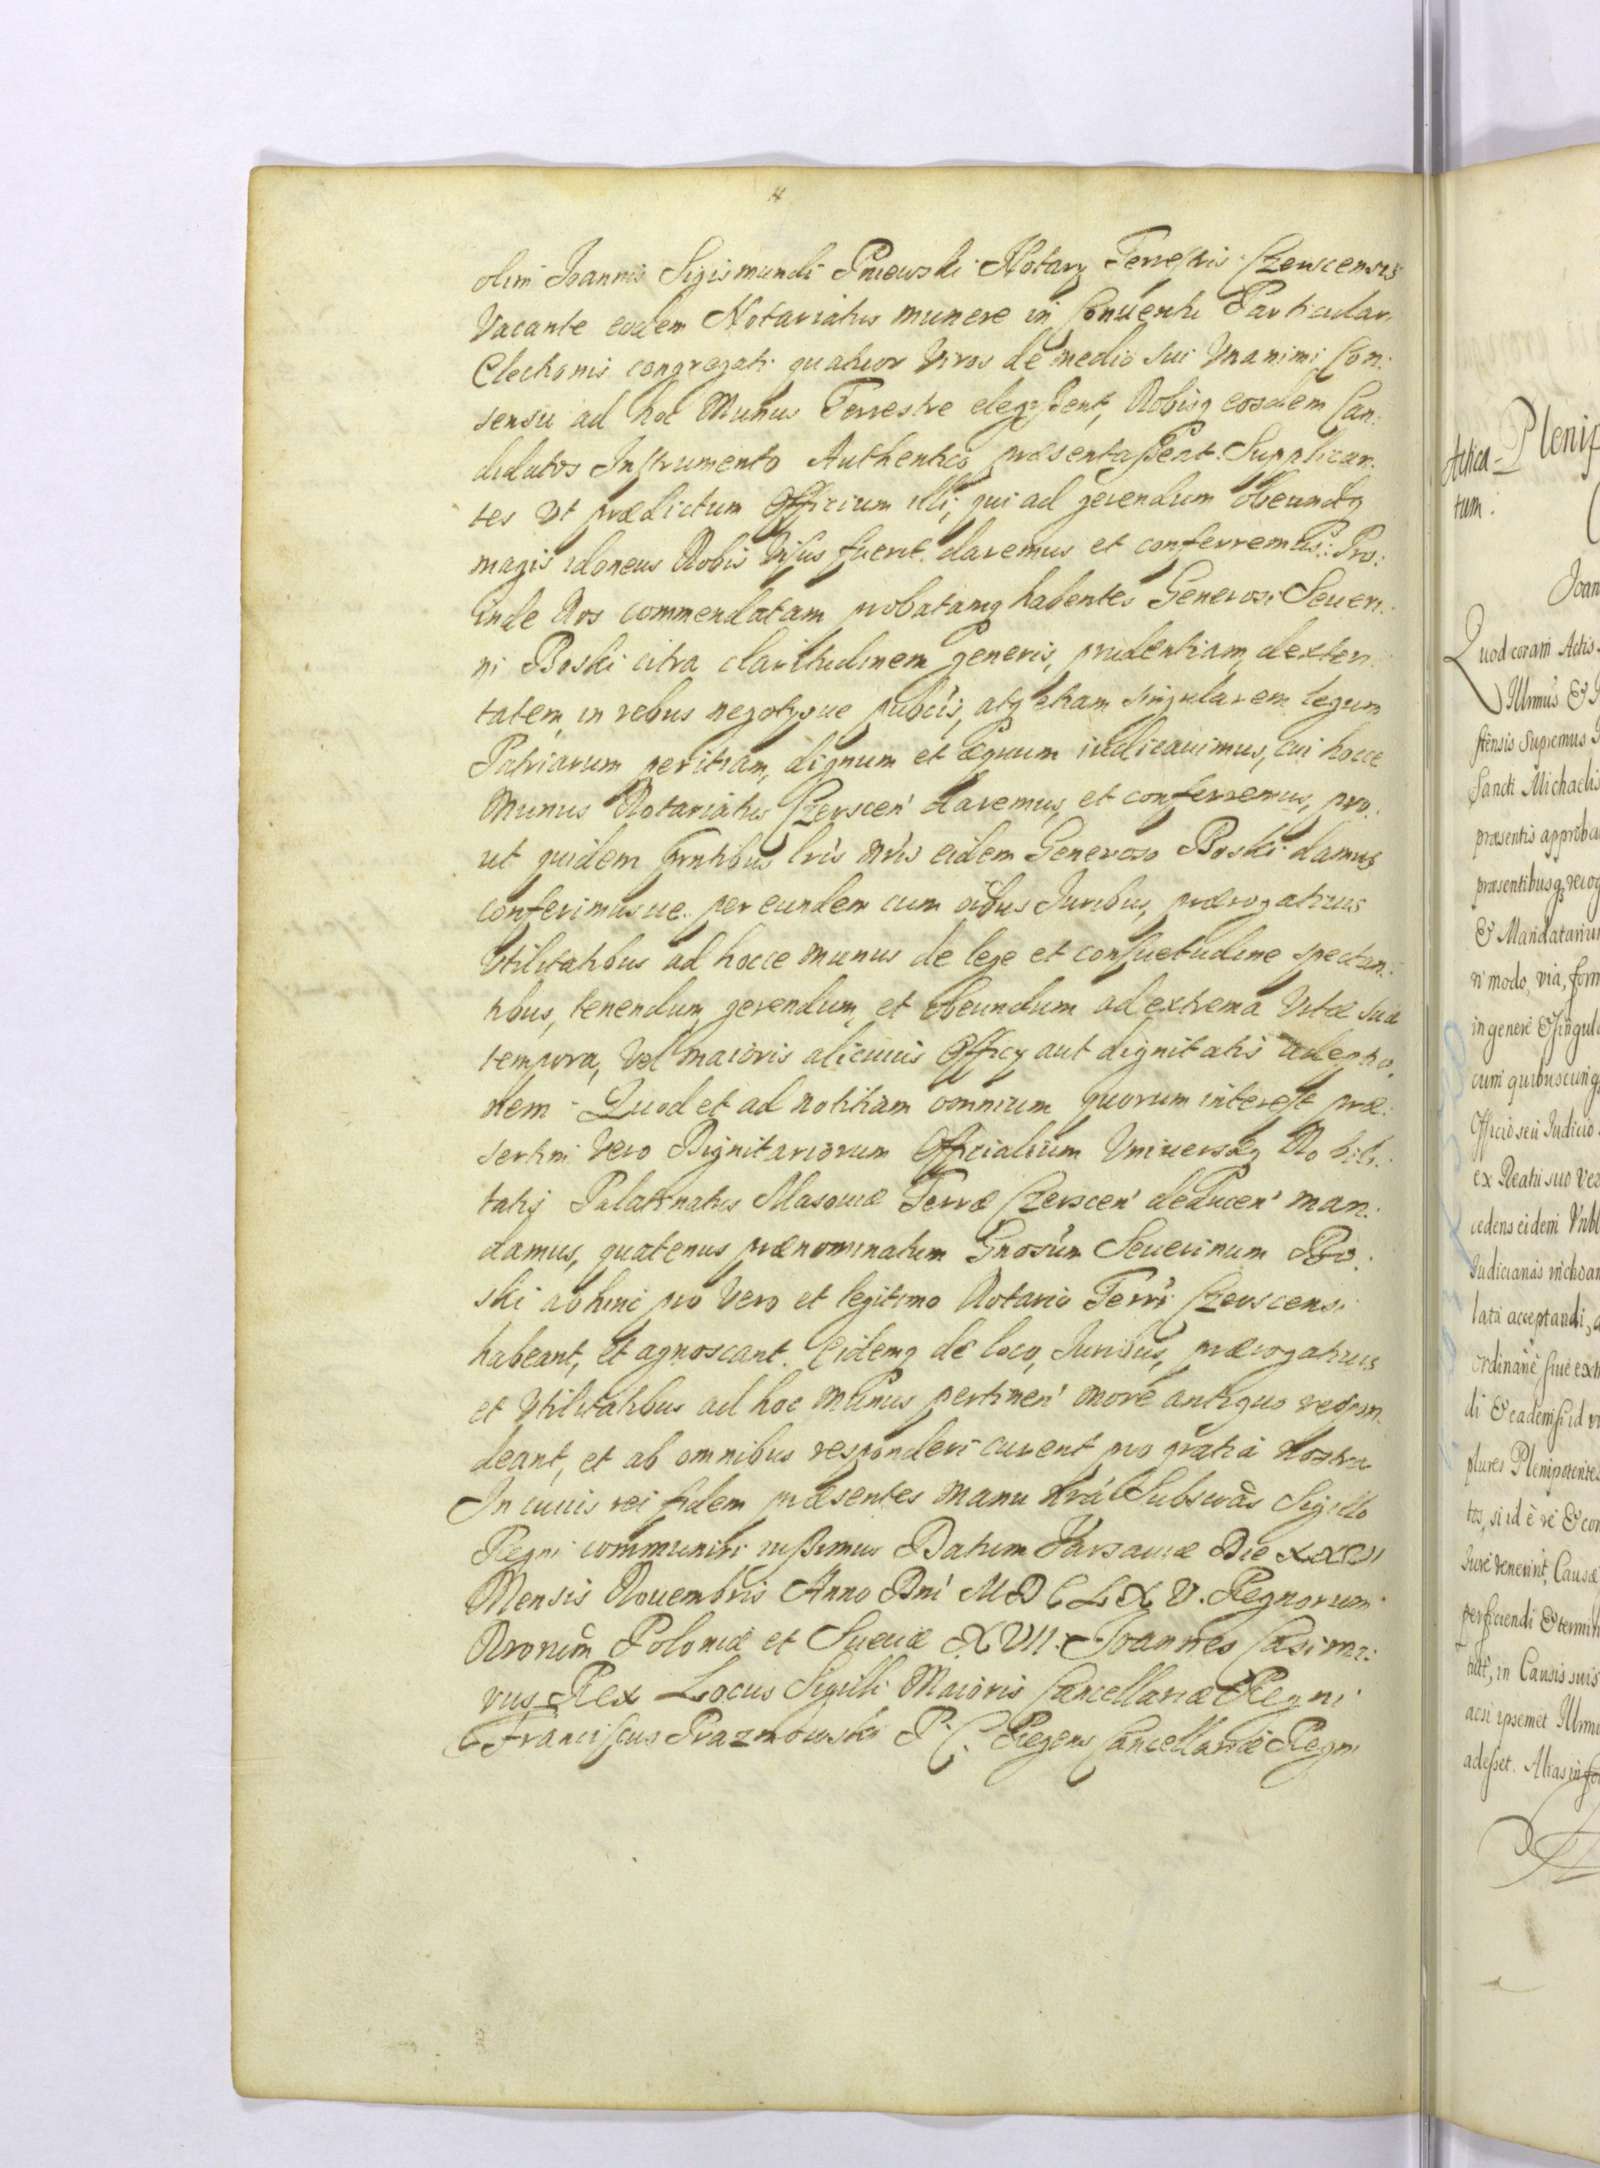 olim Joannis Sigismundi Pniewski Notarij Terrestris Czerscensis
Vacante eodem Notariatus munere in Conuentu Particulari
Electionis congregati quatuor Viros de medio sui Vnanimi Con:
sensu ad hoc Munus Terrestre elegißent, Nobisq eosdem Can:
didatos Instrumento Authentico præsentaßent. Supplican:
tes Vt prædictum Officium illi, qui ad gerendum obeundũq
magis idoneus Nobis Visus fuerit daremus et conferremus: Pro:
inde Nos commendatam probatamq habentes Generosi Seueri:
ni Boski citra claritudinem generis, prudentiam, dexteri:
tatem in rebus negotijsque publ̃cis, atq etiam singularem legum
Patriarum peritiam, dignum et æquum iudicauimus, cui hocce
Munus Notariatus Czerscen̕ daremus, et conferremus, pro:
ut quidem pr̃ntibus lr̃is nr̃is eidem Generoso Boski damus
conferimusue. per eundem cum oĩbus Juribus, prærogatiuis
Vtilitatibus ad hocce munus de lege et consuetudine spectan:
tibus, tenendum, gerendum, et obeundum ad extrema Vitæ suæ
tempora, Vel maioris alicuius Officij aut dignitatis adeptio:
nem - Quod et ad notitiam omnium quorum interest præ:
sertim Vero Dignitariorum Officialium Vniuersæq Nobili:
tatis Palatinatus Masouiæ Terræ Czerscen̕ deducen̕ man:
damus, quatenus prænominatum Gnosũm Seuerinum Bo:
ski ab hinc pro Vero et legitimo Notario Terr̃i Czerscensi
habeant, et agnoscant. Eidemq de loco, Juribus, prærogatiuis
et Vtilitatibus ad hoc munus pertinen̕ more antiquo respon
deant, et ab omnibus responderi curent pro gratia Nostra
In cuius rei fidem præsentes manu nrã Subscrãs Sigillo
Regni communiri iußimus Datum Varsauiæ Die XXVI
Mensis Nouembris Anno Dn̄i MDCLXV. Regnorum
Nrorum̃ Poloniæ et Sueciæ XVII. Joannes Casimi:
rus Rex Locus Sigilli Maioris Cancellariæ Regni
Franciscus Prazmowski P. C. Regens Cancellariæ Regni
Actica-
tum:
Plenip
Joan
Quod coram Actis
Illrmus &
stensis Supremus
Sancti Michaelis
præsentis approba
præsentibusq recog
& Mandatariu
ri modo, via, form
in genere & singul
cum quibuscunq
Officio seu Judicio
ex Reatu suo
cedens eidem
Judiciarias inchoan
lata acceptandi,
ordinarie siue ext
di & eadem si id
plures Plenipotentes
tos, si id è re & com
Jure venerint, Causæ
perficiendi & termin
in Causis suis
acsi ipsemet Illrmu
adesset. Alias in fo